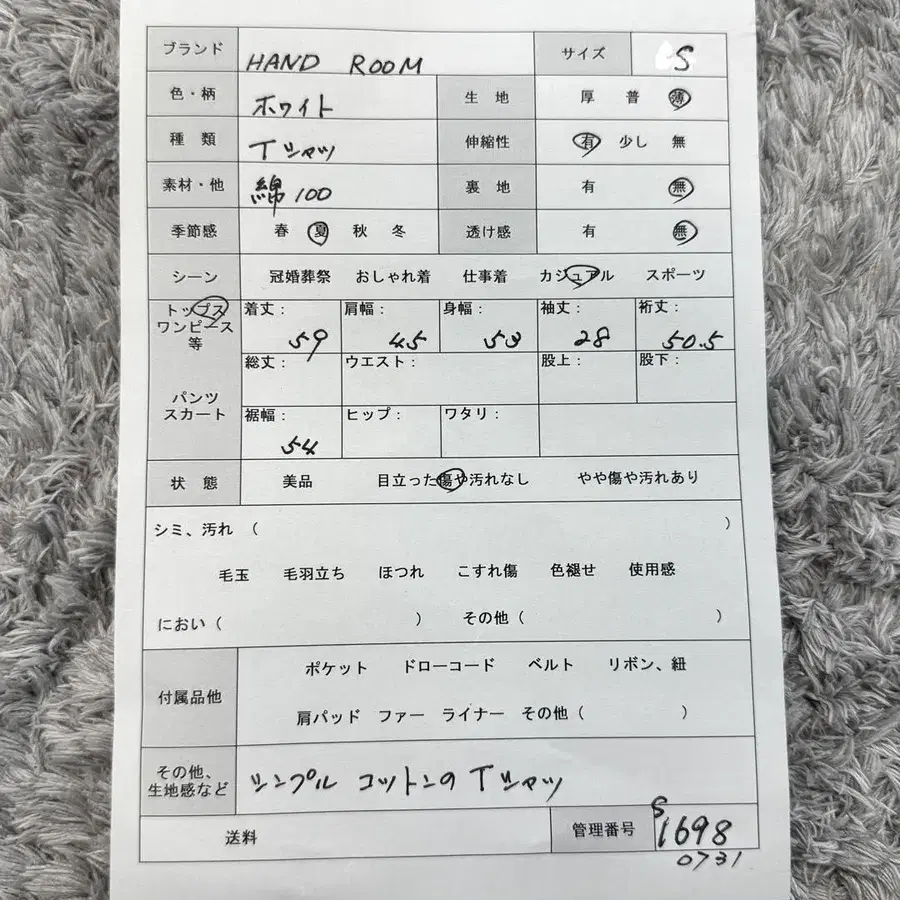 ブランド HAND ROOM サイズ S
色・柄 ホワイト 生地 厚 普 薄
種類 Tシャツ 伸縮性 有 少し 無
素材・他 綿100 裏地 有 無
季節感 春 夏 秋 冬 透け感 有 無
シーン 冠婚葬祭 おしゃれ着 仕事着 カジュアル スポーツ
トップス
ワンピース
等
着丈: 59 肩幅: 45 身幅: 53 袖丈: 28 裄丈: 50.5
パンツ
スカート
総丈: ウエスト: 股上: 股下:
裾幅: 54 ヒップ: ワタリ:
状態 美品 目立った傷や汚れなし やや傷や汚れあり
シミ、汚れ ( )
毛玉 毛羽立ち ほつれ こすれ傷 色褪せ 使用感
におい ( ) その他 ( )
付属品他 ポケット ドローコード ベルト リボン、紐
肩パッド ファー ライナー その他 ( )
その他、
生地感など
シンプル コットンの Tシャツ
送料 管理番号 S1698
0731